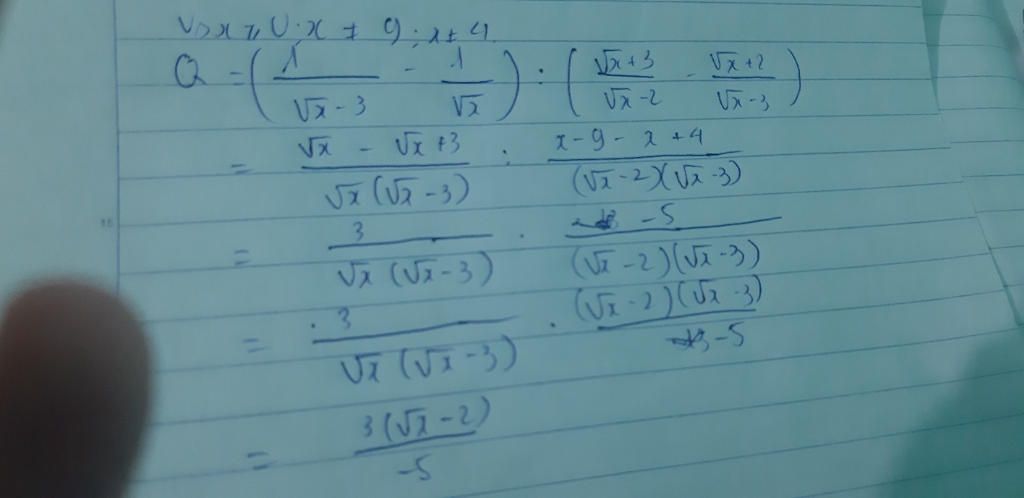 x ≥ 0; x ≠ 9; x ≠ 4
Q = (1/(√x - 3) - 1/√x) : ((√x + 3)/(√x - 2) - (√x + 2)/(√x - 3))
= (√x - √x + 3)/(√x (√x - 3)) : (x - 9 - x + 4)/((√x - 2)(√x - 3))
= 3/(√x (√x - 3)) : -5/((√x - 2)(√x - 3))
= 3/(√x (√x - 3)) . ((√x - 2)(√x - 3))/-5
= 3(√x - 2)/-5